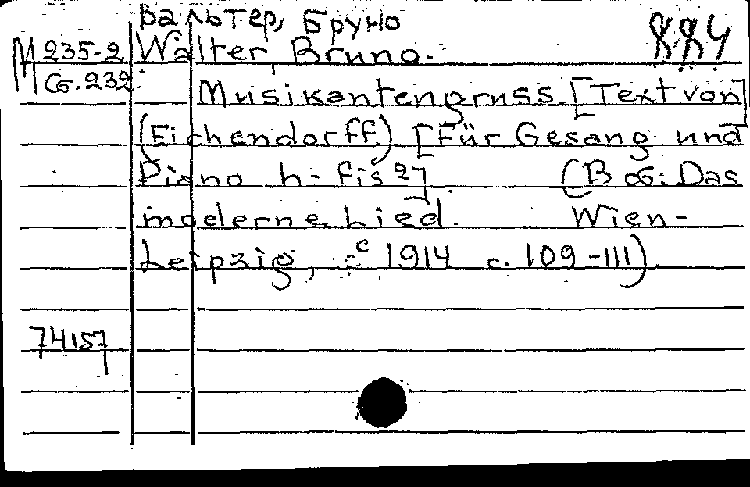 Вальтер, Бруно
М 235-2 Walter, Bruno. 884
Сб. 232.
Musikantengruss. [Text von
(Eichendorff) [Für Gesang und
Piano h-fis²] (В сб: Das
moderne Lied. Wien-
Leipzig, c 1914 c. 109-111)
74157